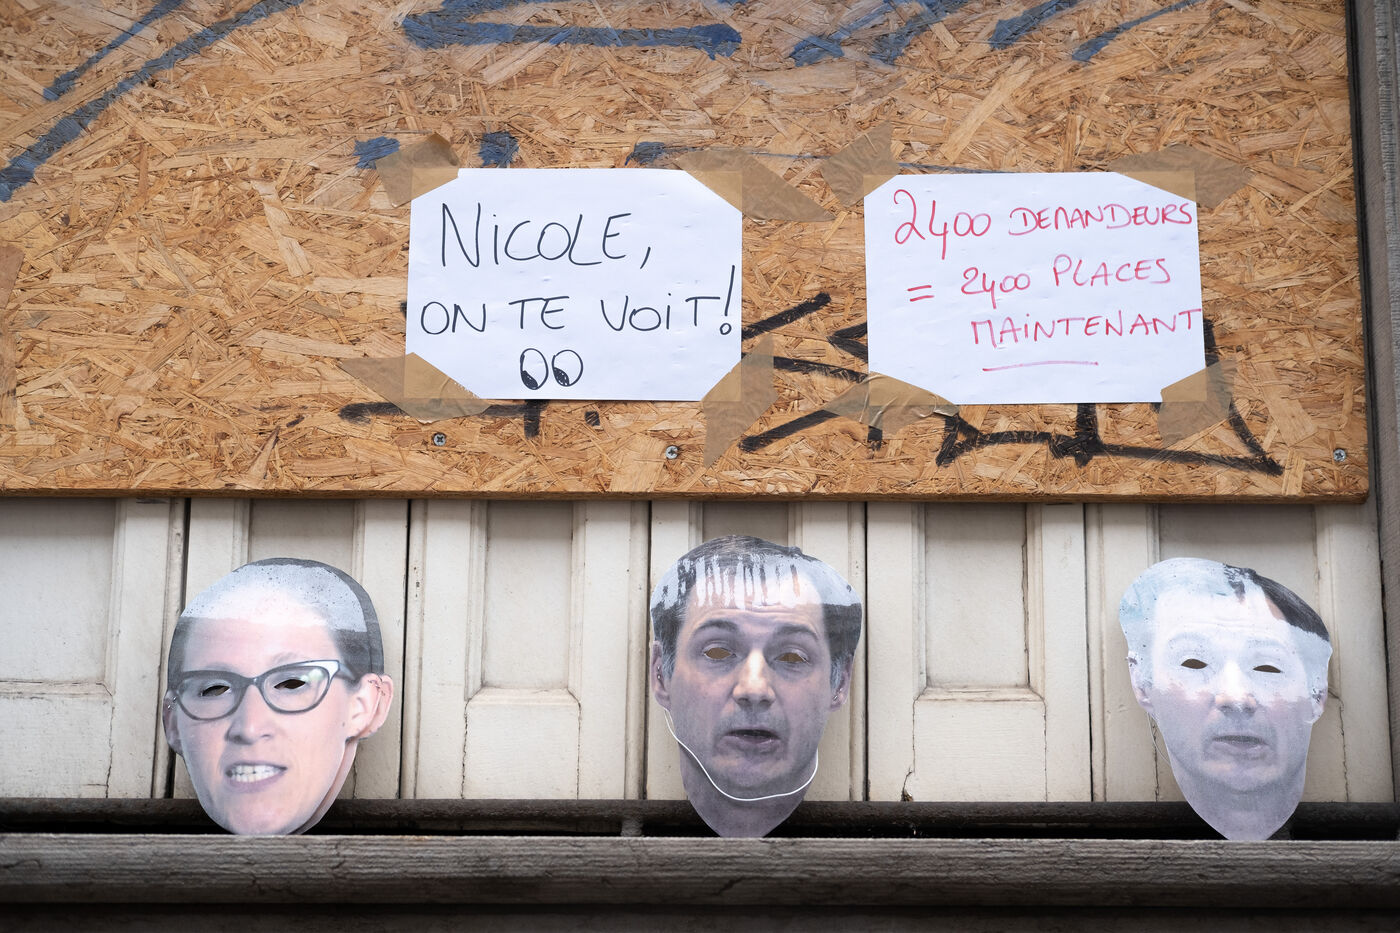 NICOLE,
ON TE VOIT!
2400 DEMANDEURS
= 2400 PLACES
MAINTENANT